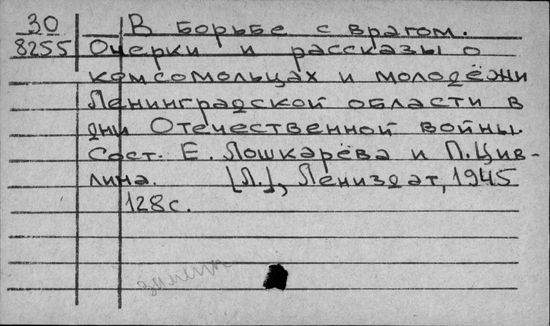 30 В борьбе с врагом.
8255 Очерки и рассказы о
комсомольцах и молодёжи
Ленинградской области в
дни Отечественной войны.
Сост. Е. Лошкарёва и П. Цив-
лина. [Л.], Лениздат, 1945
128 с.